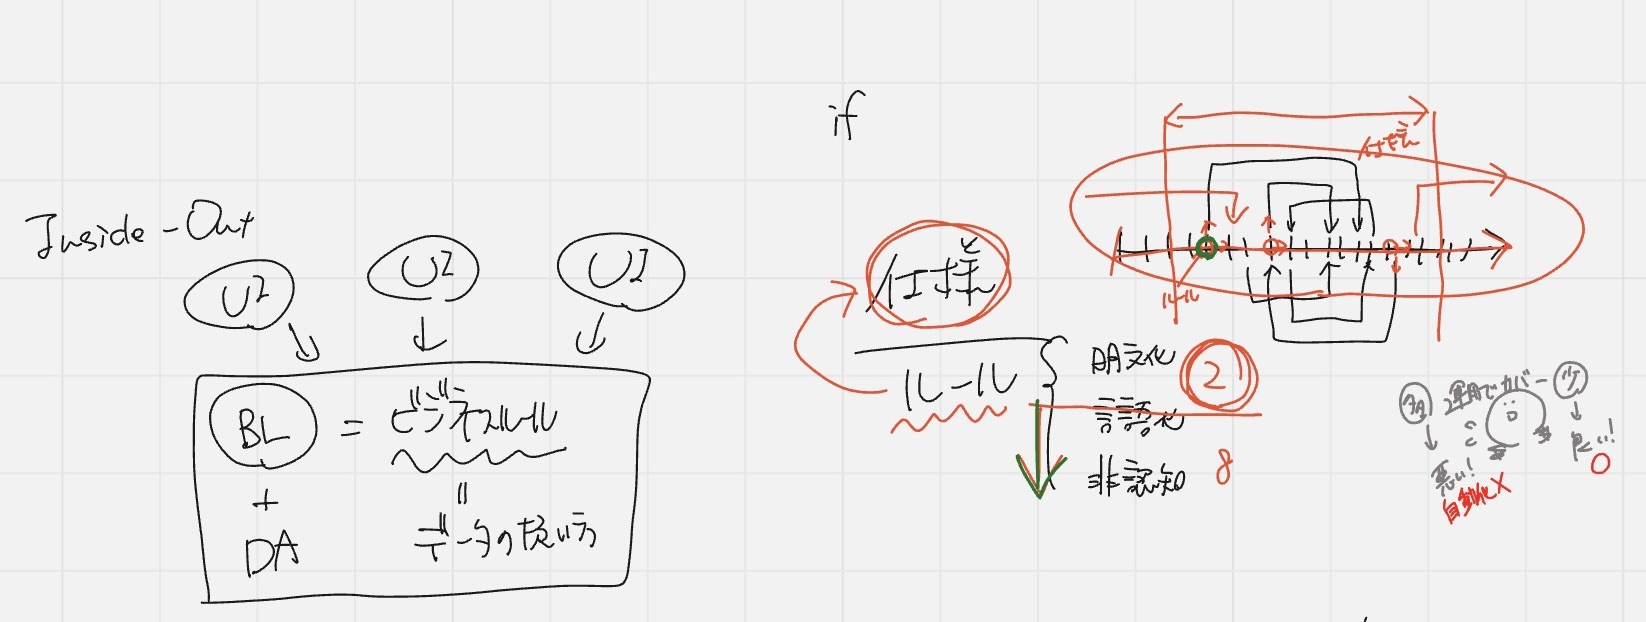 Inside-Out
UI
UI
UI
BL = ビジネスルール
+
DA
=
データの扱い方
if
仕様
ルール
明文化
言語化
非認知
2
8
仕様
ルール
多
運用でカバー
少
悪い!
自動化×
良い!
○